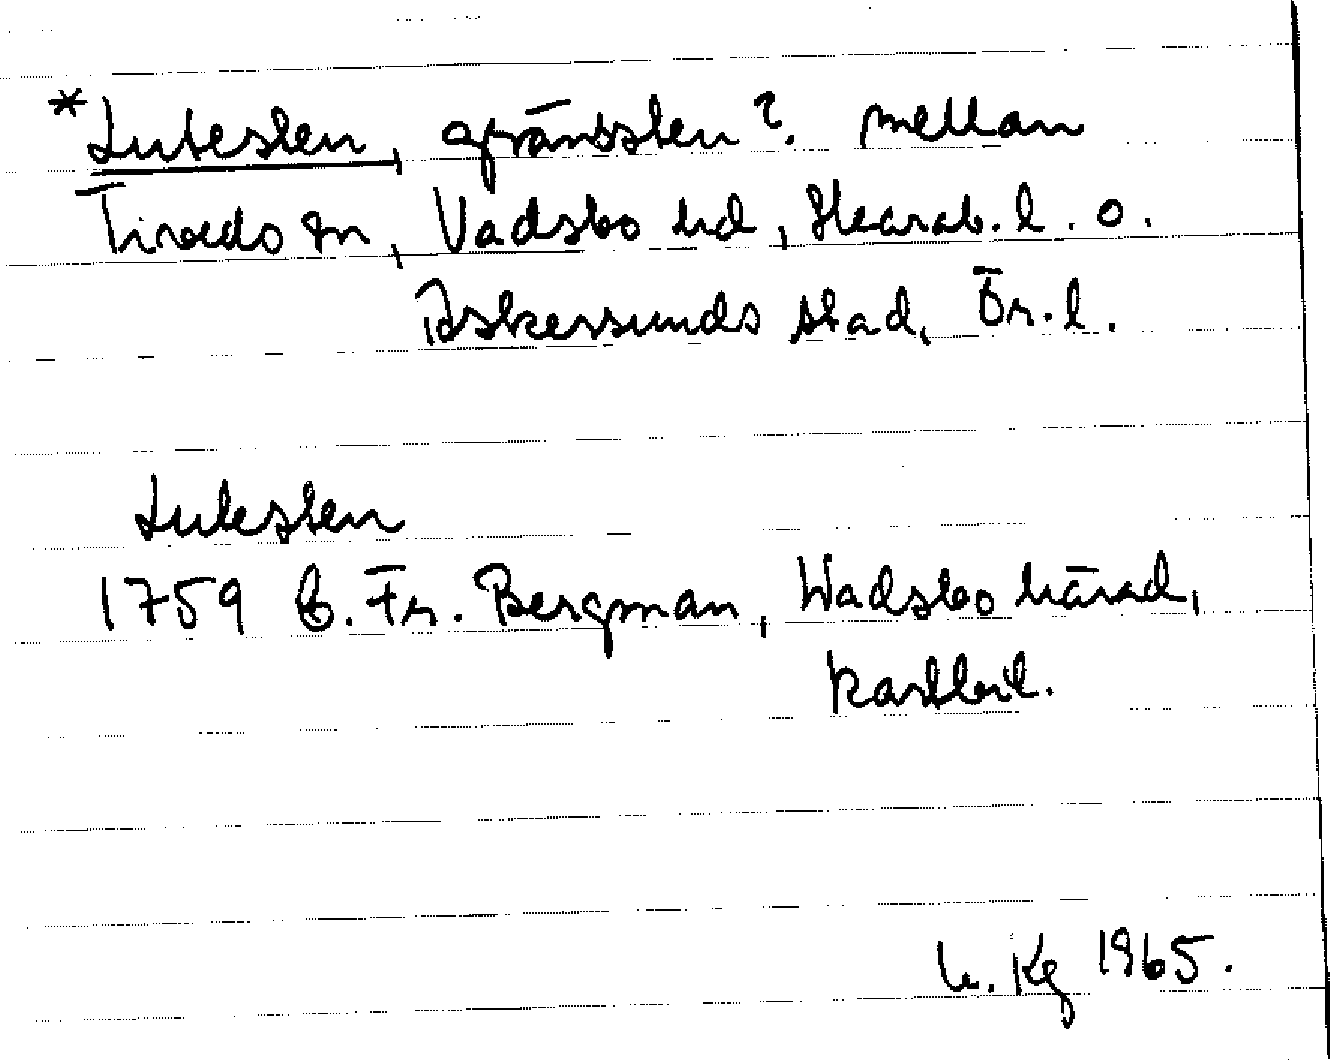 *Lutesten, gränssten? mellan
Tiveds sn, Vadsbo hd, Skarab. l. o.
Askersunds stad, Ör. l.
Lutesten
1759 C. Fr. Bergman, Wadsbo härad,
kartbil.
Kg 1965.